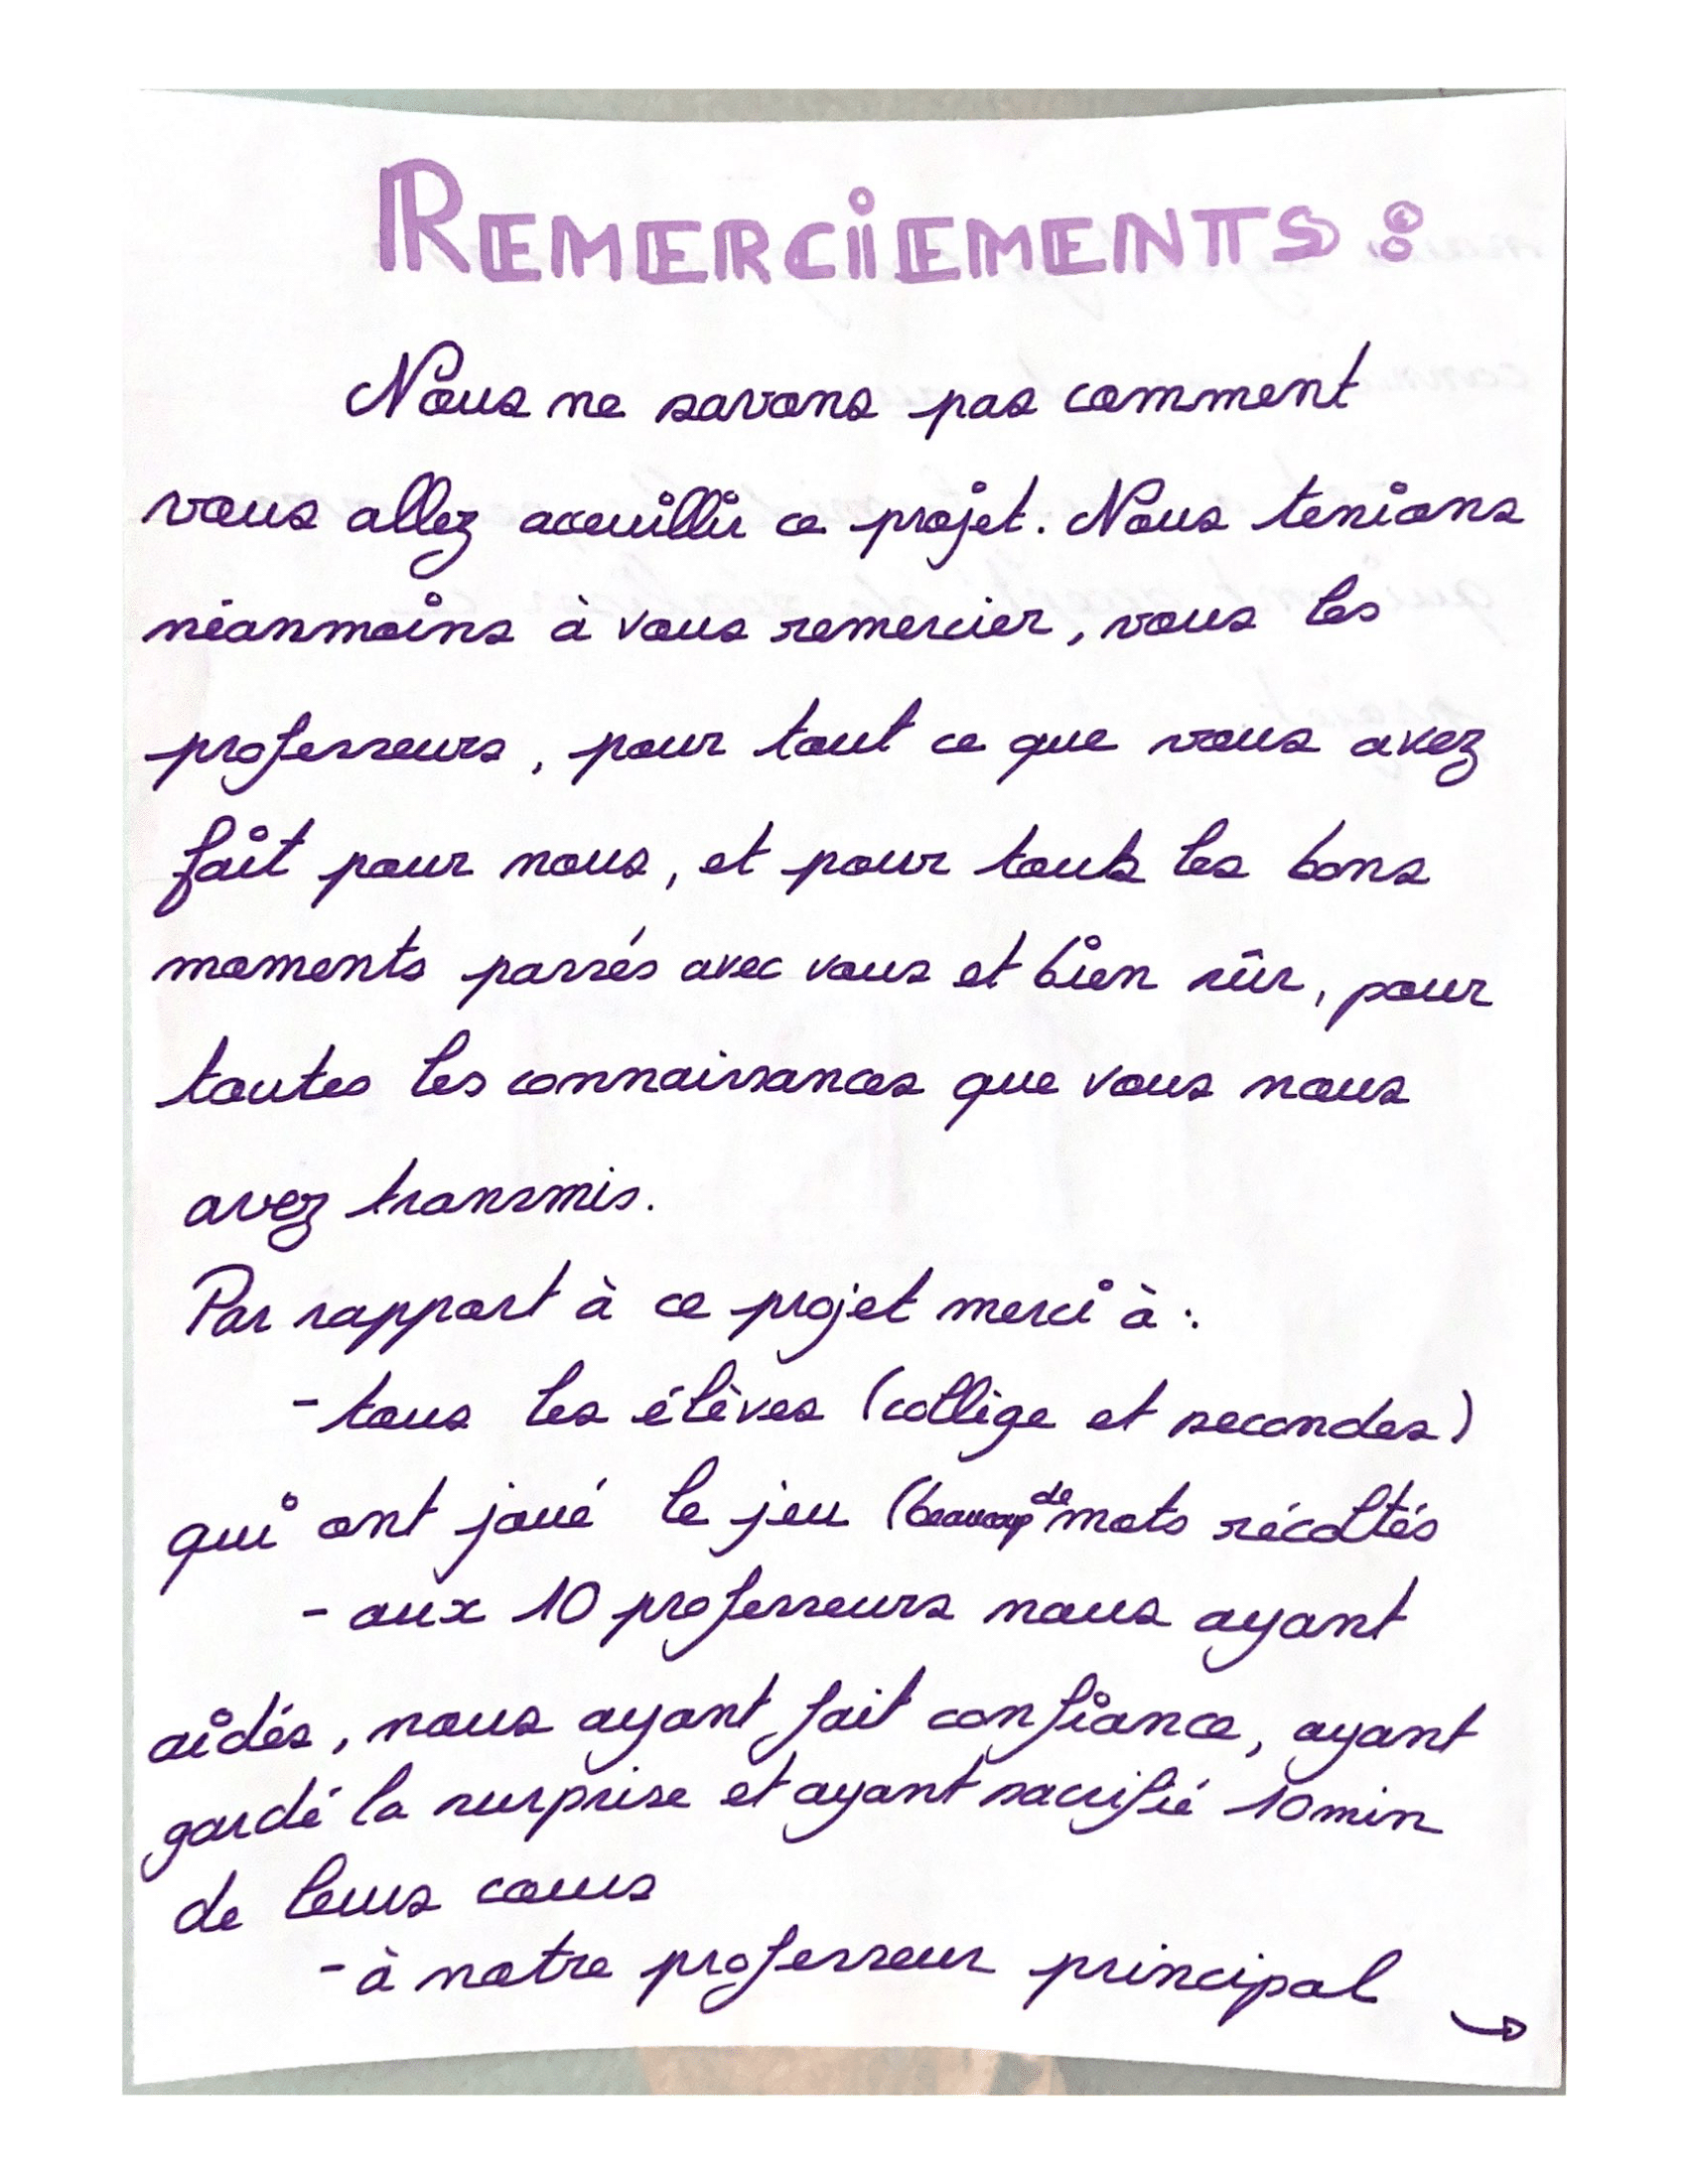 REMERCIEMENTS :
Nous ne savons pas comment
vous allez accueillir ce projet. Nous tenions
néanmoins à vous remercier, vous les
professeurs, pour tout ce que vous avez
fait pour nous, et pour touts les bons
moments passés avec vous et bien sûr, pour
toutes les connaissances que vous nous
avez transmis.
Par rapport à ce projet merci à :
- tous les élèves (collège et secondes)
qui ont joué le jeu (beaucoup de mots récoltés
- aux 10 professeurs nous ayant
aidés, nous ayant fait confiance, ayant
gardé la surprise et ayant sacrifié 10min
de leurs cours
- à notre professeur principal →